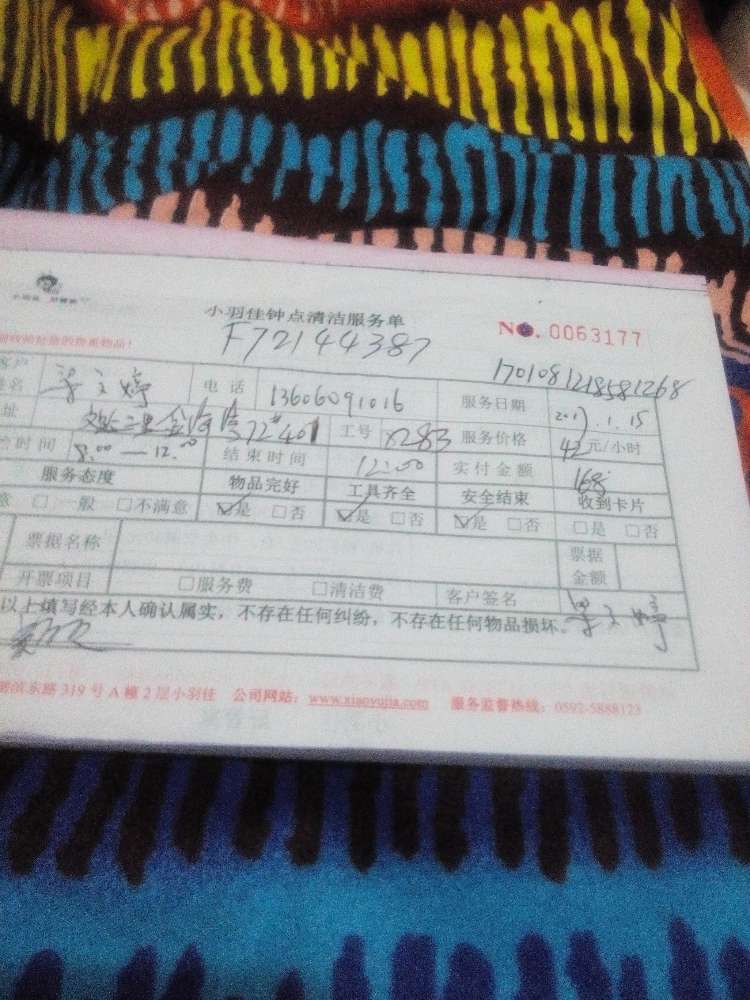 小羽佳钟点清洁服务单
No.0063177
F72144387
1701081218581268
客户姓名 电话 13606091016 服务日期 2017.1.15
址 72#401 工号 8283 服务价格 42元/小时
时间 8:00—12:00 结束时间 12:00 实付金额 168
服务态度 物品完好 工具齐全 安全结束 收到卡片
意 □一般 □不满意 ☑是 □否 ☑是 □否 ☑是 □否 □是 □否
票据名称 票据金额
开票项目 □服务费 □清洁费 客户签名
以上填写经本人确认属实，不存在任何纠纷，不存在任何物品损坏。
滨东路319号A幢2层小羽佳 公司网站：www.xiaoyujia.com 服务监督热线：0592-5888123